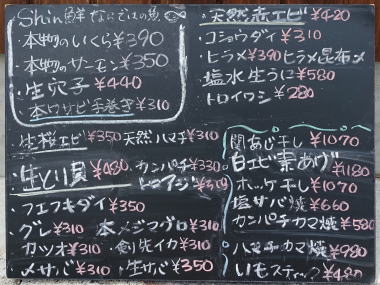 Shin鮮ならではの魚
・本物のいくら¥390
・本物のサーモン¥350
・生穴子 ¥440
本ワサビ手巻き¥310
・天然赤エビ ¥420
・コショウダイ ¥310
・ヒラメ¥390 ヒラメ昆布〆
・塩水生うに¥580
・トロイワシ ¥280
・生桜エビ ¥350 天然ハマチ¥310
・生とり貝¥480 ・カンパチ¥330
・トロアジ¥310
・フエフキダイ¥350
・グレ¥310 本メジマグロ¥310
・カツオ¥310 ・剣先イカ¥310
・〆サバ¥310 ・生サバ¥350
関あじ干し ¥1070
白エビ素あげ¥1180
ホッケ干し¥1070
塩サバ焼¥660
カンパチカマ焼¥580
ハマチカマ焼¥980
いもスティック¥480